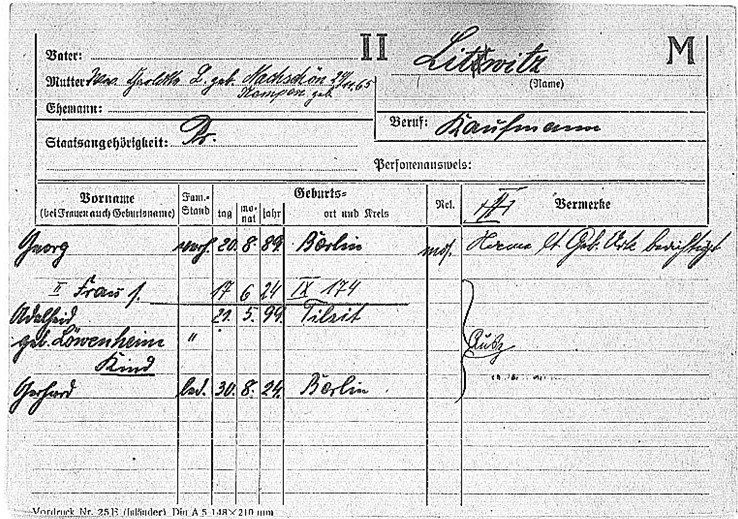 II
M
Vater:
Litwitz
(Name)
Mutter geb. Nachschön
Kempen geb.
Ehemann:
Beruf: Kaufmann
Staatsangehörigkeit: Pr.
Personenausweis:
Vorname Fam.- Geburts- Rel. Vermerke
(bei Frauen auch Geburtsname) Stand tag mo- jahr ort und Kreis
nat
Georg verh. 20. 8. 89. Berlin mos. Geb. Urk. berichtigt
II Frau 17 6 24 IX 174
Adelheid 21. 5. 99. Tilsit
geb. Löwenheim "
Kind
Gerhard led. 30. 8. 24. Berlin
Vordruck Nr. 25 E (Inländer) Din A 5 148×210 mm